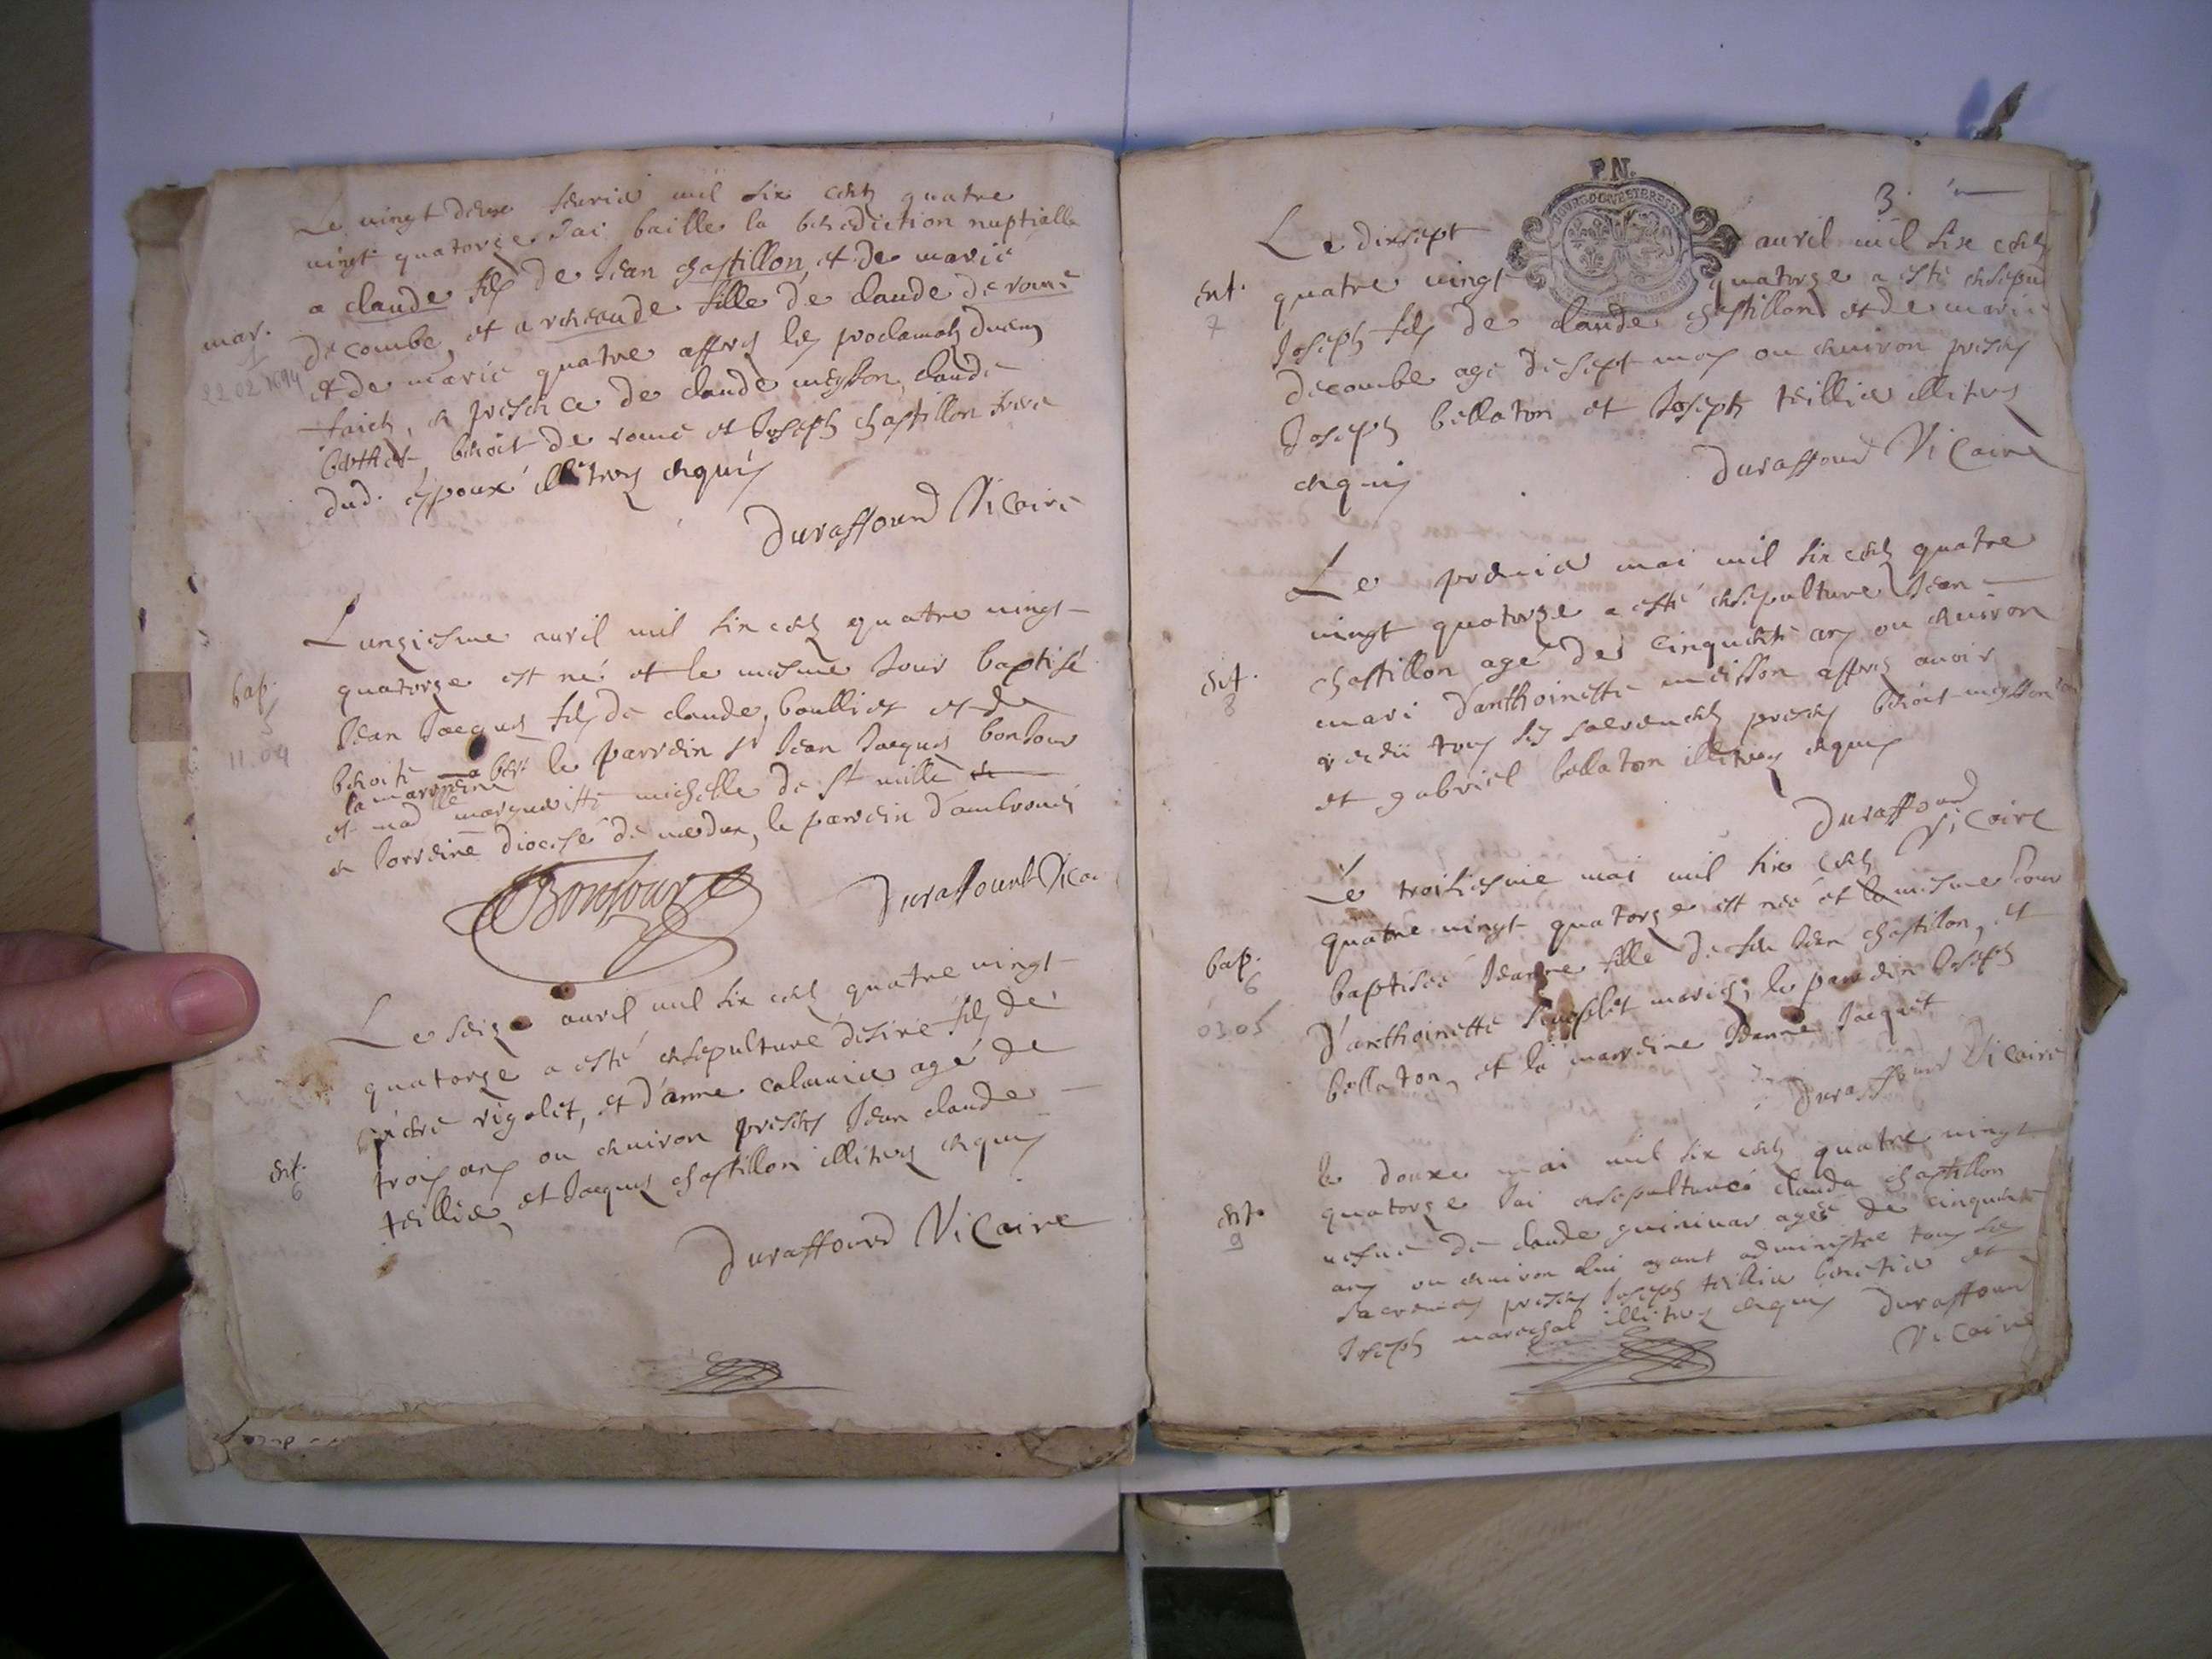 Le vingt deux fevrier mil six cents quatre
vingt quatorze j'ai baille la benediction nuptialle
a claude fils de Jean chastillon et de marie
decombe, et a fille de claude de rome
et de marie quatre affres les proclamats
faicts, en presence de claude meysson, claude
benoit de rome et Joseph chastillon frere
dud. espoux illitres enquis
Duraffourd Vicaire
mar.
1
22 02 1694
L'unziesme avril mil six cents quatre vingt
quatorze est né et le mesme Jour baptisé
Jean Jacques fils de claude boullier et de
benoite le parrein sr Jean Jacques bonJour
la marreine
et mad lle margueritte michelle de st mille
en lorreine diocese de le parrein d'ambronai
bap.
5
11.04
BonJour
Duraffourd Vicai
Le seize avril mil six cents quatre vingt
quatorze a esté ensepulturé desiré fils de
rigolet, et d'anne agé de
trois ans ou environ presens Jean claude
teillier, et Jacques chastillon illitres enquis
ent.
6
Duraffourd Vicaire
P.N.
3.
Le dixsept avril mil six cents
quatre vingt quatorze a esté ensepul
Joseph fils de claude chastillon et de marie
decombe agé de sept mois ou environ presens
Joseph bellaton et Joseph teillier illitres
enquis
Duraffourd Vicaire
ent.
7
Le premier mai mil six cents quatre
vingt quatorze a esté ensepulturé Jean
chastillon agé de cinquente ans ou environ
mari d'anthoinette meisson affres avoir
receü tous ses sacrements presens benoit meysson
et gabriel bellaton illitres enquis
ent.
8
Duraffourd
Vicaire
Le troisiesme mai mil six cents
quatre vingt quatorze est née et le mesme Jour
baptisée Jeanne fille de feu Jean chastillon, et
d'anthoinette mariés, le parrein Joseph
bellaton, et la marreine Jeanne Jacquet
bap.
6
03 05
Duraffourd Vicaire
le douze mai mil six cents quatre vingt
quatorze J'ai ensepulturé clauda chastillon
vefue de claude agée de cinquente
ans ou environ lui ayant administré tous les
sacrements presens Joseph teillier et
Joseph marechal illitres enquis Duraffourd
Vicaire
ent.
9